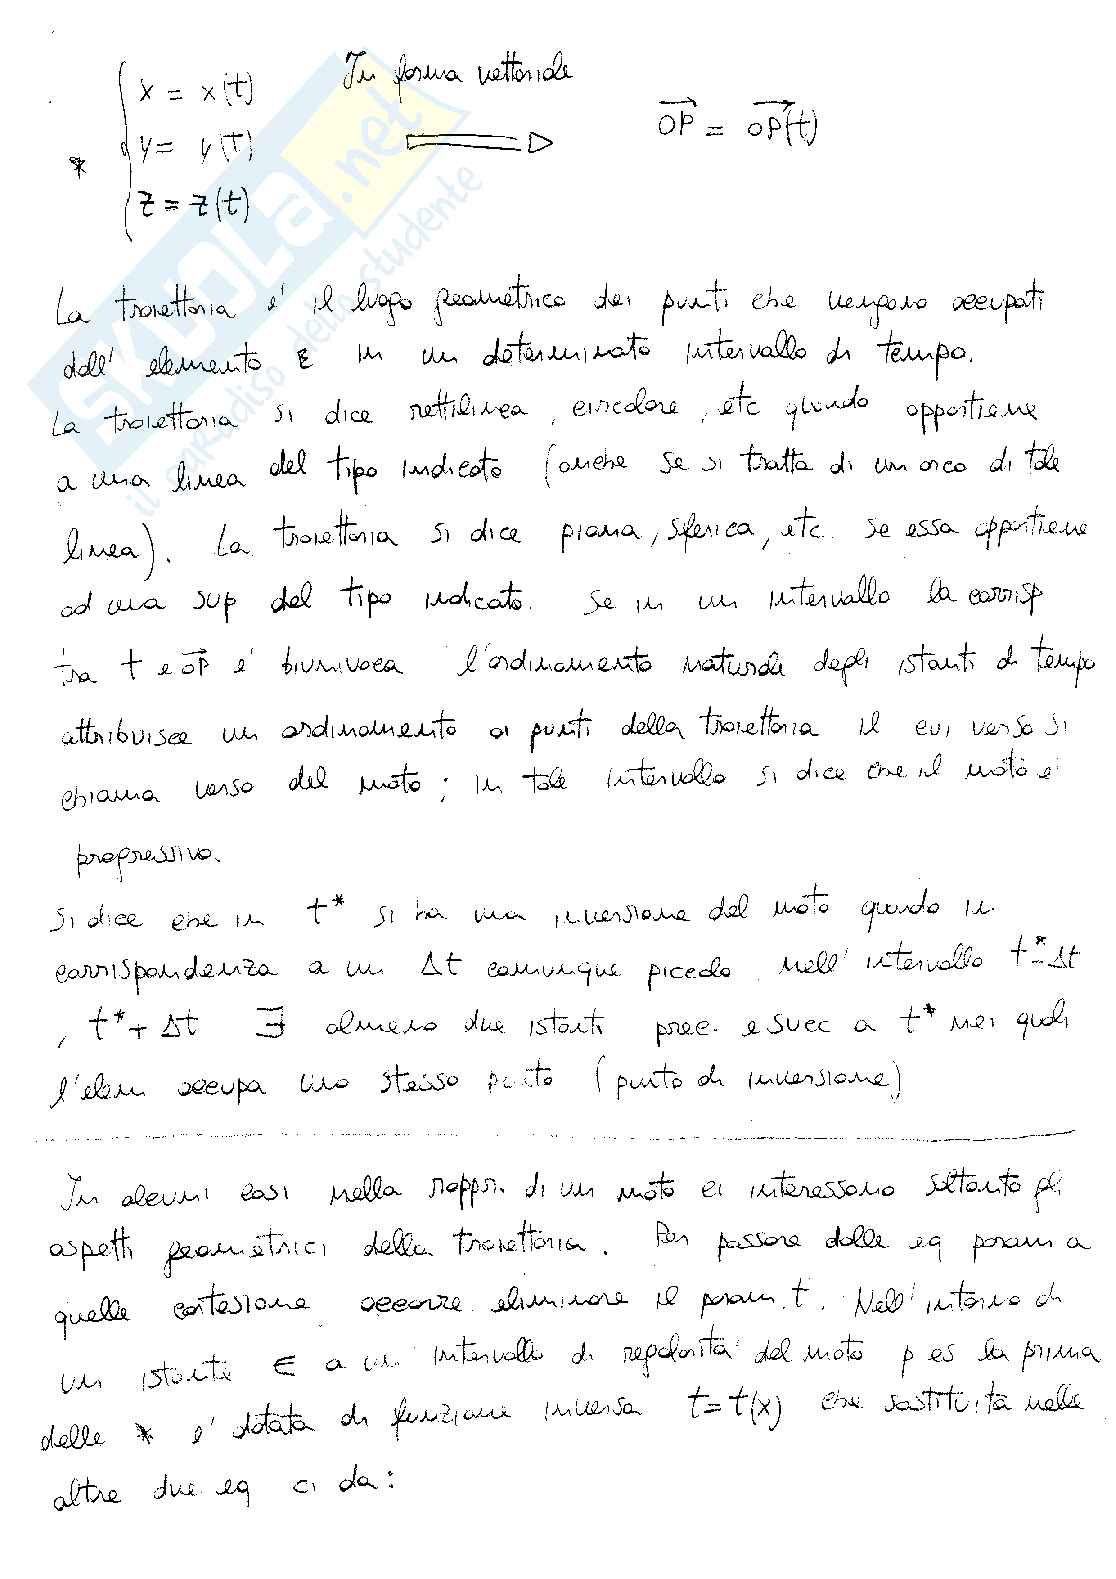 x = x(t) In forma vettoriale
* y = y(t) ⟹ OP = OP(t)
z = z(t)
La traiettoria e' il luogo geometrico dei punti che vengono occupati
dall' elemento E in un determinato intervallo di tempo.
La traiettoria si dice rettilinea, circolare, etc quando appartiene
a una linea del tipo indicato (anche se si tratta di un arco di tale
linea). La traiettoria si dice piana, sferica, etc. se essa appartiene
ad una sup del tipo indicato. Se in un intervallo la corrisp
tra t e OP e' biunivoca l'ordinamento naturale degli istanti di tempo
attribuisce un ordinamento ai punti della traiettoria il cui verso si
chiama verso del moto; in tale intervallo si dice che il moto e'
progressivo.
Si dice che in t* si ha una inversione del moto quando in
corrispondenza a un Δt comunque piccolo nell' intervallo t*-Δt
, t*+Δt ∃ almeno due istanti prec. e succ a t* nei quali
l'elem occupa uno stesso punto (punto di inversione)
In alcuni casi nella rappr. di un moto ci interessano soltanto gli
aspetti geometrici della traiettoria. Per passare dalle eq param a
quelle cartesiane occorre eliminare il param. t. Nell' intorno di
un istante ∈ a un intervallo di regolarità del moto p es la prima
delle * e' dotata di funzione inversa t=t(x) che sostituita nelle
altre due eq ci da:
SKUOLA.net
il paradiso dello studente